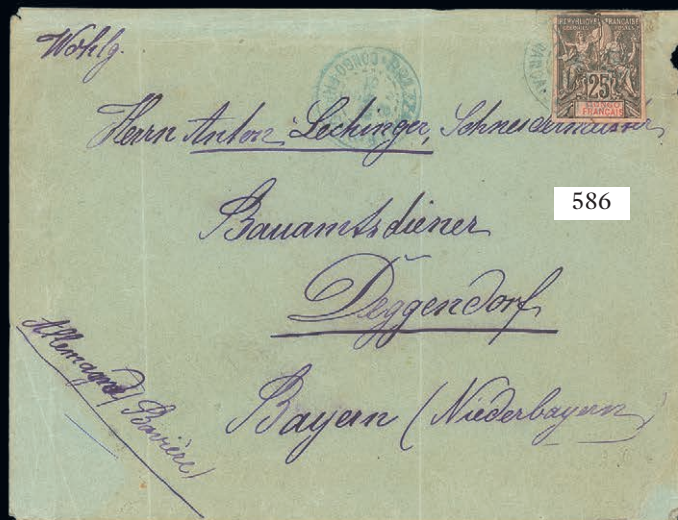 Wohlg.
REPUBLIQUE FRANÇAISE
25
CONGO
FRANÇAIS
Herrn Anton Lechinger, Schneidermeister,
586
Bauamtsdiener
Deggendorf
Bayern (Niederbayern)
Allemagne (Bavière)